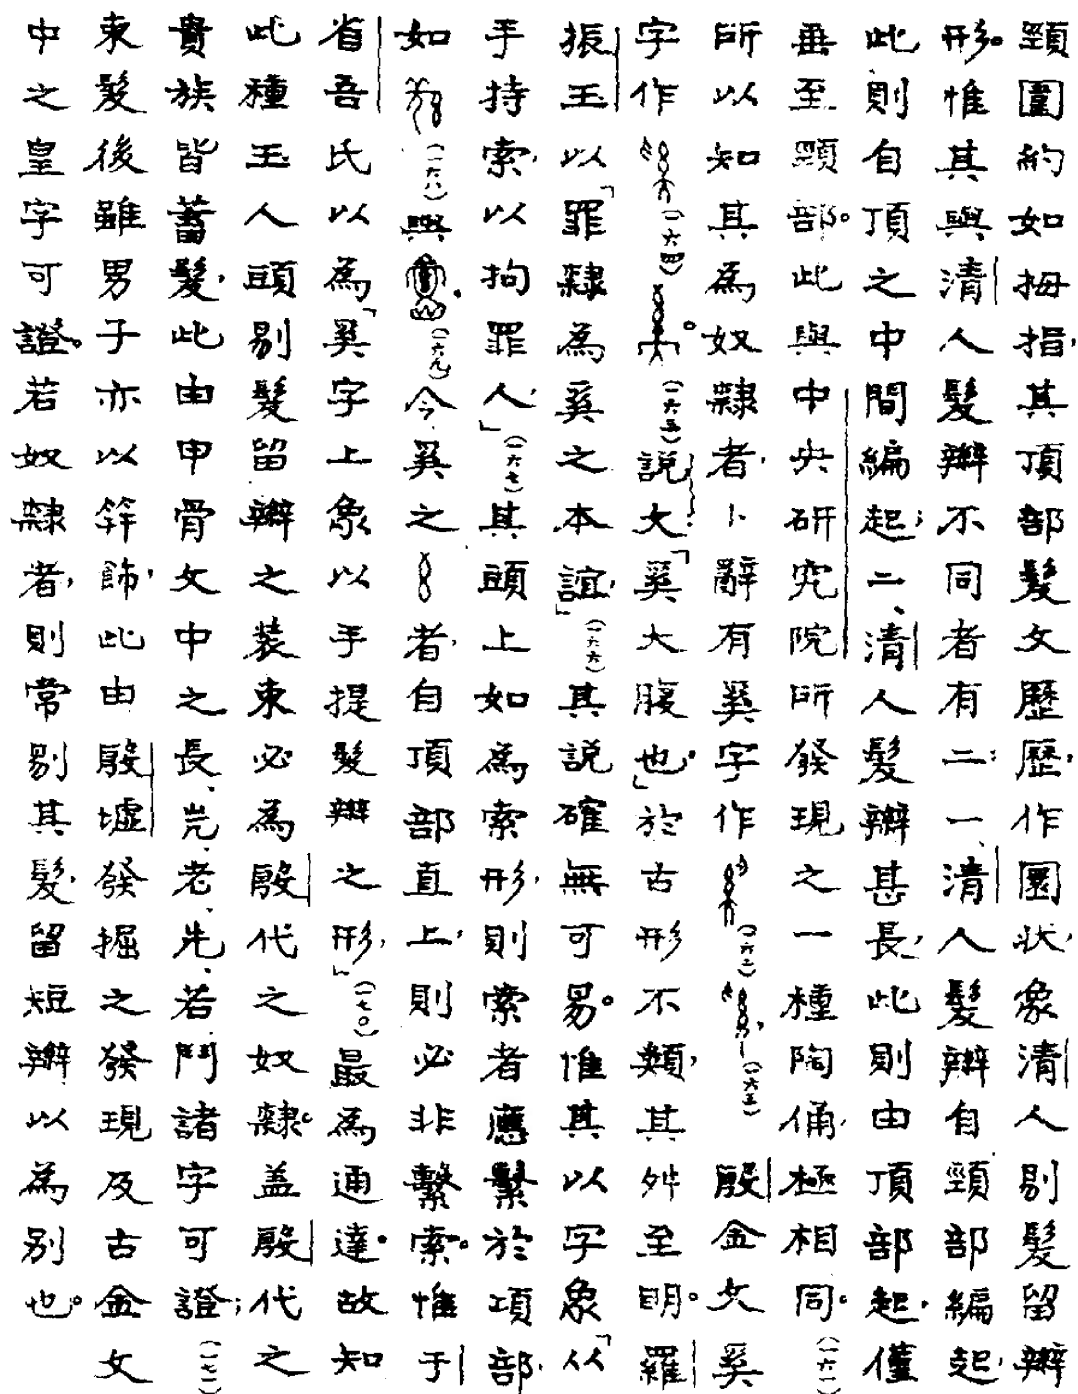 頸圍約如拇指，其頂部髮文歷歷，作圈狀，象清人剔髮留辮
形。惟其與清人髮辮不同者有二：一、清人髮辮自頸部編起，
此則自頂之中間編起；二、清人髮辮甚長，此則由頂部起，僅
垂至頸部。此與中央研究院所發現之一種陶俑，極相同。(一六一)
所以知其為奴隸者，卜辭有奚字作(一六二)(一六三)，殷金文奚
字作(一六四)(一六五)。說文「奚大腹也」。於古形不類，其舛至明。羅
振玉以「罪隸為奚之本誼，」(一六六)其說確無可易。惟其以字象「从
手持索，以拘罪人，」(一六七)其頭上如為索形，則索者應繫於項部，
如(一六八)與(一六九)。今奚之者，自頂部直上，則必非繫索。惟于
省吾氏以為「奚字上象以手提髮辮之形，」(一七〇)最為通達。故知
此種玉人頭剔髮留辮之裝束必為殷代之奴隸。盖殷代之
貴族皆蓄髮，此由甲骨文中之長、光、老、先、若、鬥諸字可證；(一七一)
束髮後雖男子亦以笄飾，此由殷墟發掘之發現及古金文
中之皇字可證。若奴隸者，則常剔其髮，留短辮以為別也。